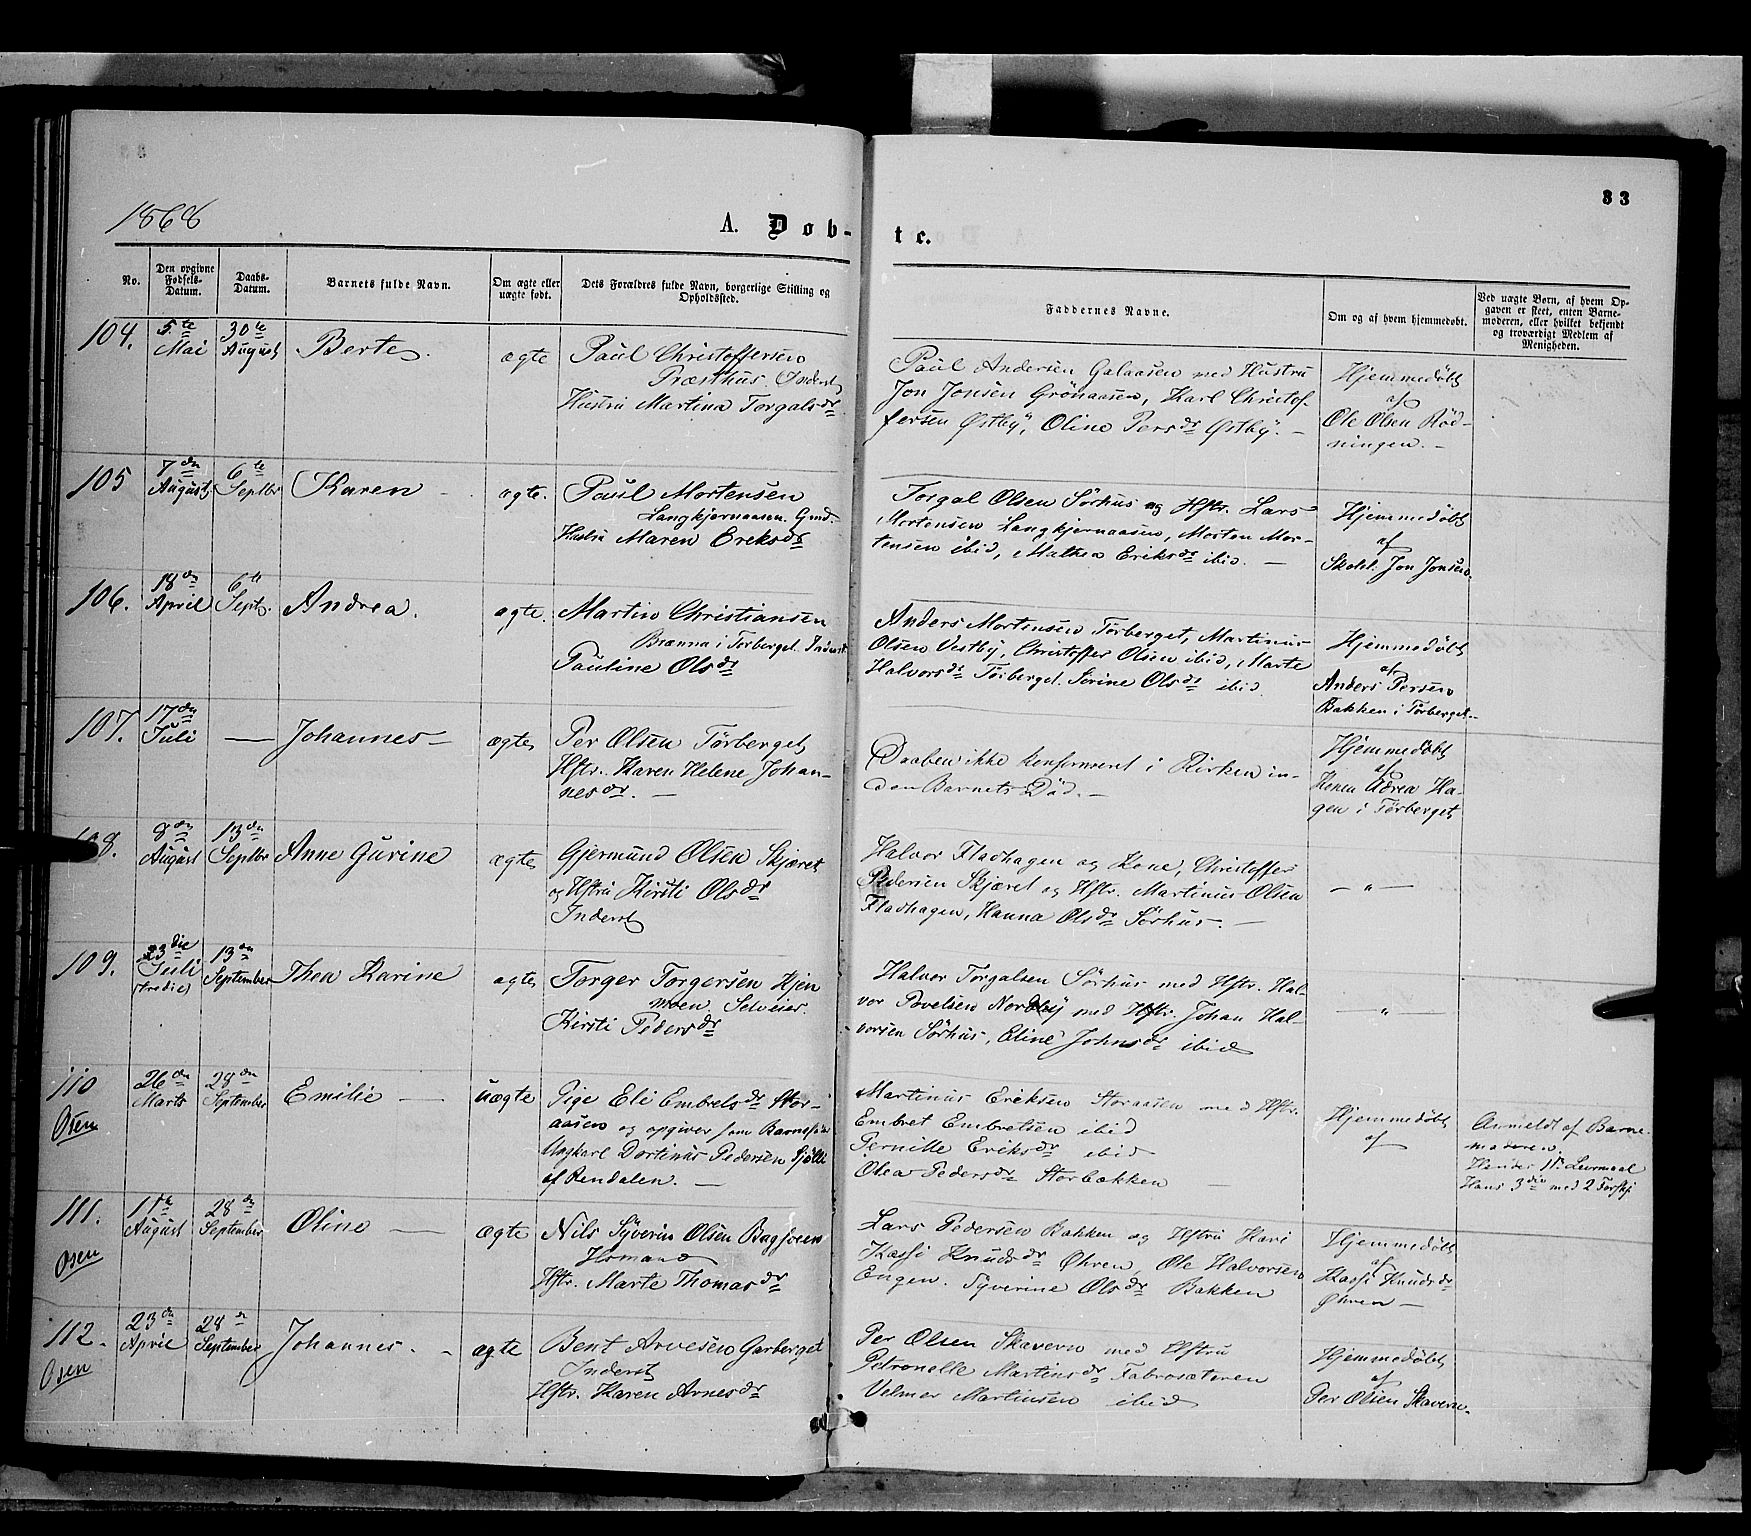 1868
A. Døb-
te.
33
No.
Den opgivne Fødsels-Datum.
Daabs-Datum.
Barnets fulde Navn.
Om ægte eller uægte født.
Dets Forældres fulde Navn, borgerlige Stilling og Opholdssted.
Faddernes Navne.
Om og af hvem hjemmedøbt.
Ved uægte Børn, af hvem Opgaven er skeet, enten Barnemoderen, eller hvilket bekjendt og troværdigt Medlem af Menigheden.
104.
5te Mai
30te August
Berte
ægte
Paul Christoffersen
Præsthus. Inderst
Hustru Martina Torgalsdr
Paul Andersen Galaasen med Hustru
Jon Jonsen Grönaasen, Karl Christof-
fersen Østby, Oline Persdr Østby. —
Hjemmedøbt
af
Ole Olsen Rød-
ningen. —
105
7dn August
6te Septbr
Karen
ægte.
Paul Mortensen
Langkjernaasen. Gmd.
Hustru Maren Eriksdr
Torgal Olsen Sörhus og Hstr. Lars
Mortensen Langkjernaasen, Morten Mor-
tensen ibid, Mathea Eriksdr ibid. —
Hjemmedøbt
af
Skolel. Jon Jonsen.
106.
18dn April
6te Sept.
Andrea.
ægte.
Martin Christiansen
Brænna i Törberget. Inderst
Pauline Olsdr
Anders Mortensen Törberget, Martinus
Olsen Vestby, Christoffer Olsen ibid, Marte
Halvorsdr Törberget. Serine Olsdr ibid.
Hjemmedøbt
af
Anders Persen
Bakken i Törberget.
107.
17dn Juli
—
Johannes —
ægte
Per Olsen Törberget
Hstr. Karen Helene Johan-
nesdr. —
Daaben ikke konfirmeret i Kirken in-
den Barnets Död. —
Hjemmedøbt
af
Ha-
gen i Törberget
108.
8dn August
13dn Septbr
Anne Gurine
ægte
Gjermund Olsen Skjæret
og Hstru Kirsti Olsdr
Inderst
Halvor Fladhagen og Kone, Christoffer
Pedersen Skjæret og Hstr. Martinus Olsen
Fladhagen, Hanna Olsdr Sörhus. —
— " —
109.
23die Juli
(tredie)
13dn September
Thea Karine
ægte
Torger Torgersen Kjen
moen. Selveier.
Kirsti Pedersdr
Halvor Torgalsen Sörhus med Hstr. Hal-
vor Povelsen Nordby med Hstr. Johan Hal-
vorsen Sörhus, Eline Johnsdr ibid
— " —
110
Osen
26dn Marts
28dn September
Emilie —
uægte
Pige Eli Embretsdr Stor-
aasen og opgiver som Barnefader
Ungkarl Dortinus Pedersen
af Rendalen. —
Martinus Eriksen Storaasen med Hstr.
Embret Embretsen ibid
Pernille Eriksdr ibid
Olea Pedersdr Storbækken —
Hjemmedøbt
af
Anmeldt af Barne-
moderen
Hendes 1ste Leiermaal
Hans 3die med 2 Forskj.
111.
Osen
11te August
28dn September
Oline —
ægte
Nils Syverin Olsen
Husmand
Hstr. Marte Thomasdr
Lars Pedersen Bakken og Hstru Kari
Kassi Knudsdr Øhren, Ole Halvorsen
Engen. Syverine Olsdr Bakken
Hjemmedøbt
af
Kassi Knudsdr
Øhren —
112.
Osen
23dn April
28dn September
Johannes. -
ægte
Bent Arnesen Garberget
Inderst
Hstr. Karen Arnesdr
Per Olsen Skavern med Hstru
Petronelle Martinsdr Fabrosæteren
Velmer Martinsen ibid
Hjemmedøbt
af
Per Olsen Skavern.